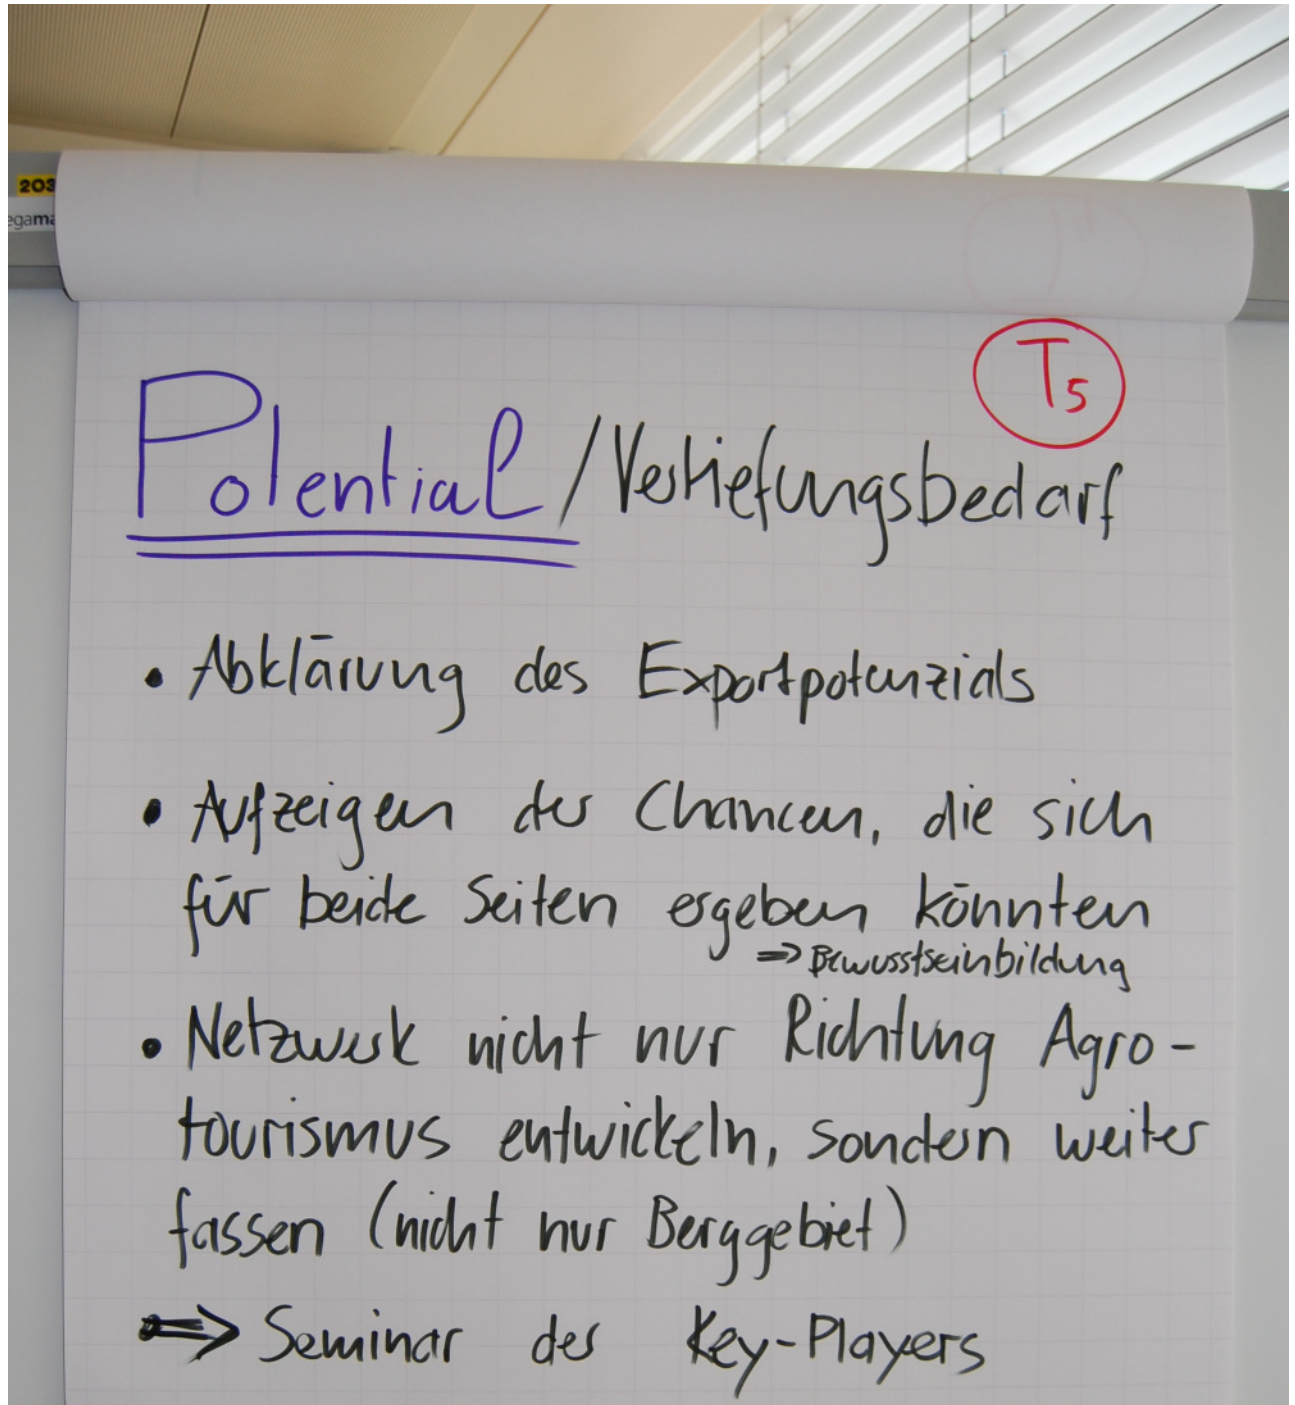 203
egama
T5
Potential / Vertiefungsbedarf
• Abklärung des Exportpotenzials
• Aufzeigen der Chancen, die sich
für beide Seiten ergeben könnten
⇒ Bewusstseinbildung
• Netzwerk nicht nur Richtung Agro-
tourismus entwickeln, sondern weiter
fassen (nicht nur Berggebiet)
⇒ Seminar der Key-Players